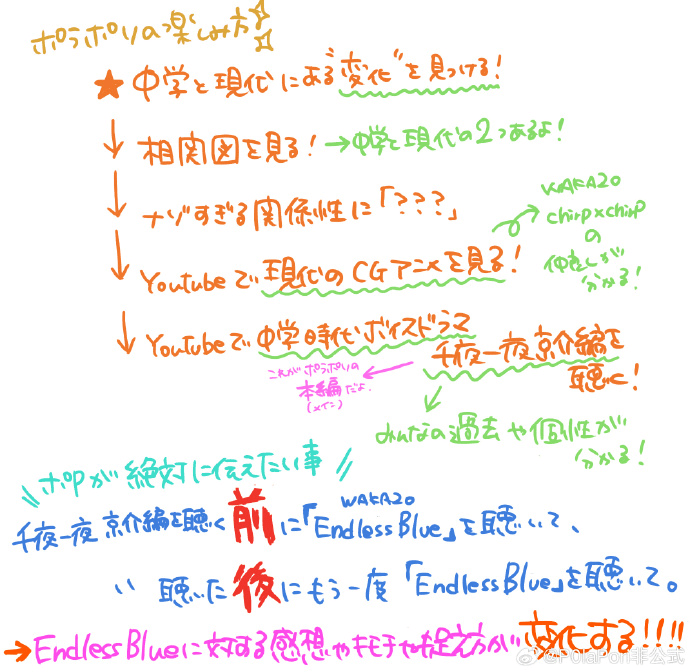 ポラポリの楽しみ方
★中学と現代にある"変化"を見つける!
↓相関図を見る! →中学と現代の2つあるよ!
↓ナゾすぎる関係性に「???」
↓Youtubeで現代のCGアニメを見る!
WAKAZO
chirp×chirp
の
仲良しが
分かる!
↓Youtubeで中学時代ボイスドラマ
千夜一夜 京介編を
聴く!
これがポラポリの
本編だよ.
(メイン)
みんなの過去や個性が
分かる!
\\ポpが絶対に伝えたい事//
千夜一夜 京介編を聴く前に「Endless Blue」を聴いて、
WAKAZO
〃 聴いた後にもう一度「Endless Blue」を聴いて。
→Endless Blueに対する感想やキモチや捉え方が変化する!!!!
@PolaPori非公式